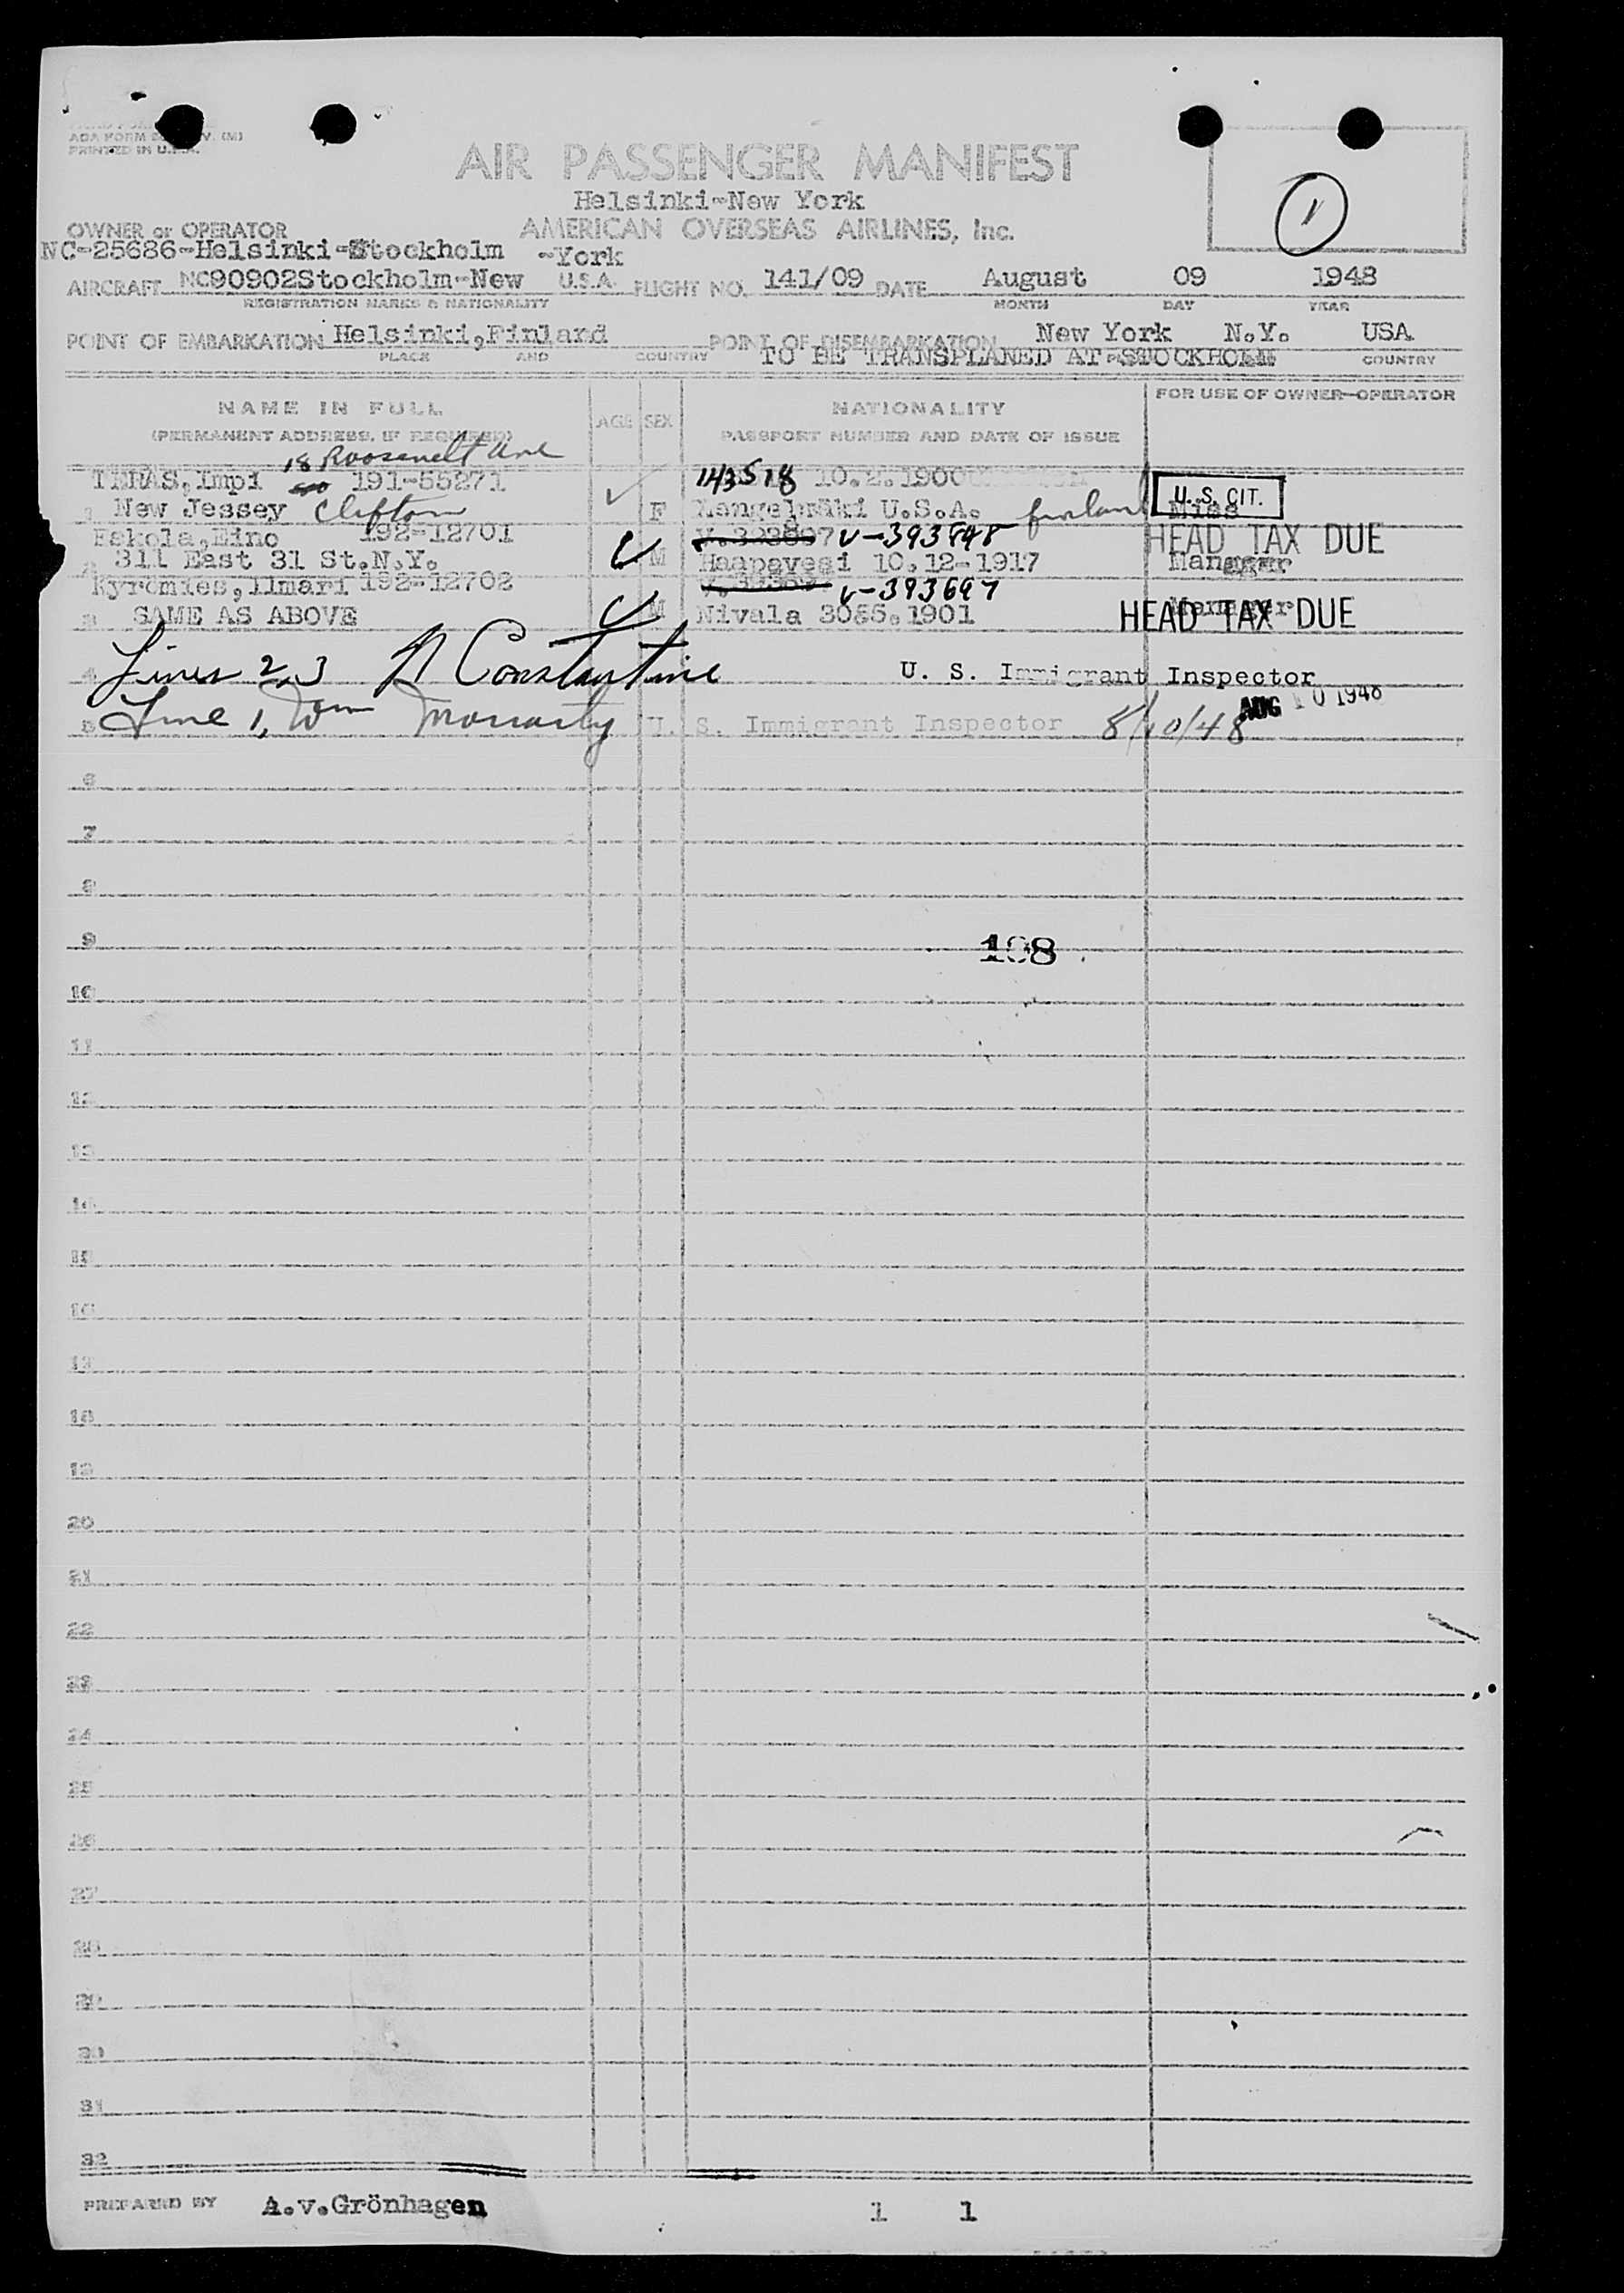 PRINTED IN U.S.A.
AIR PASSENGER MANIFEST
Helsinki-New York
OWNER or OPERATOR AMERICAN OVERSEAS AIRLINES, Inc.
NC-25686-Helsinki-Stockholm -York
AIRCRAFT NC90902Stockholm-New U.S.A. FLIGHT NO. 141/09 DATE August 09 1948
REGISTRATION MARKS & NATIONALITY MONTH DAY YEAR
POINT OF EMBARKATION Helsinki,Finland POINT OF DISEMBARKATION New York N.Y. USA
PLACE AND COUNTRY TO BE TRANSPLANED AT STOCKHOLM COUNTRY
NAME IN FULL AGE SEX NATIONALITY FOR USE OF OWNER-OPERATOR
(PERMANENT ADDRESS, IF REQUIRED) PASSPORT NUMBER AND DATE OF ISSUE
18 Roosevelt Ave
TERAS,Impi 191-55271 143518 10.2.1900
1 New Jessey Clifton F U.S.A. Finland Miss U.S. CIT.
Eskola,Eino 192-12701 V-393848 HEAD TAX DUE
2 311 East 31 St.N.Y. M Haapavesi 10.12-1917 Manager
Kyromies,Ilmari 192-12702 V-393697
3 SAME AS ABOVE M Nivala 30.5.1901 Manager HEAD TAX DUE
4 Lines 2,3 N Constantine U. S. Immigrant Inspector
AUG 10 1948
5 Line 1, Wm Moriarty U. S. Immigrant Inspector 8/10/48
6
7
8
9 198
10
11
12
13
14
15
16
17
18
19
20
21
22
23
24
25
26
27
28
29
30
31
32
PREPARED BY A.v.Grönhagen 1 1